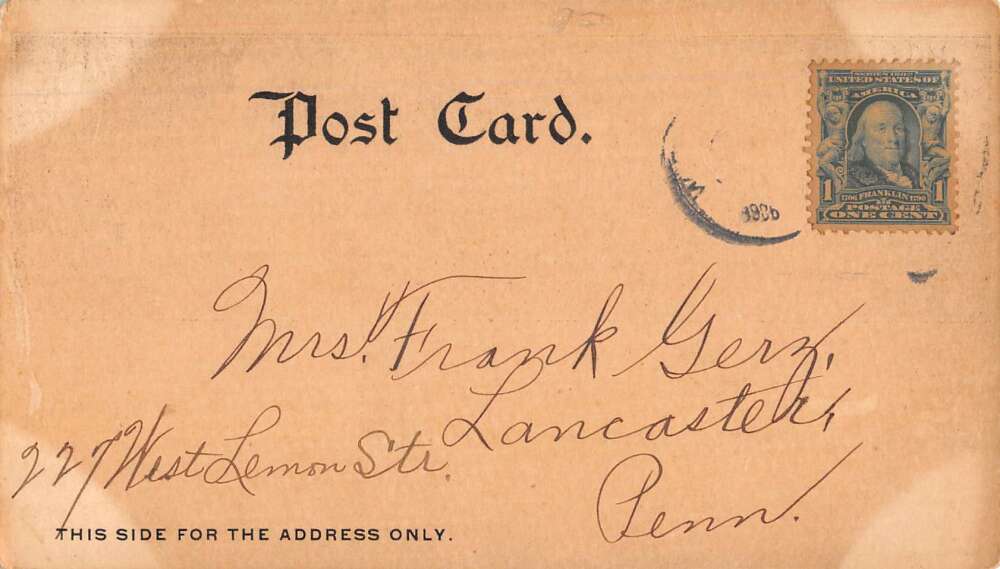 Post Card.
SERIES 1902
UNITED STATES OF
AMERICA
1 1706 FRANKLIN 1790 1
POSTAGE
ONE CENT
Mrs. Frank Gerz,
Lancaster,
227 West Lemon Str.
Penn.
THIS SIDE FOR THE ADDRESS ONLY.